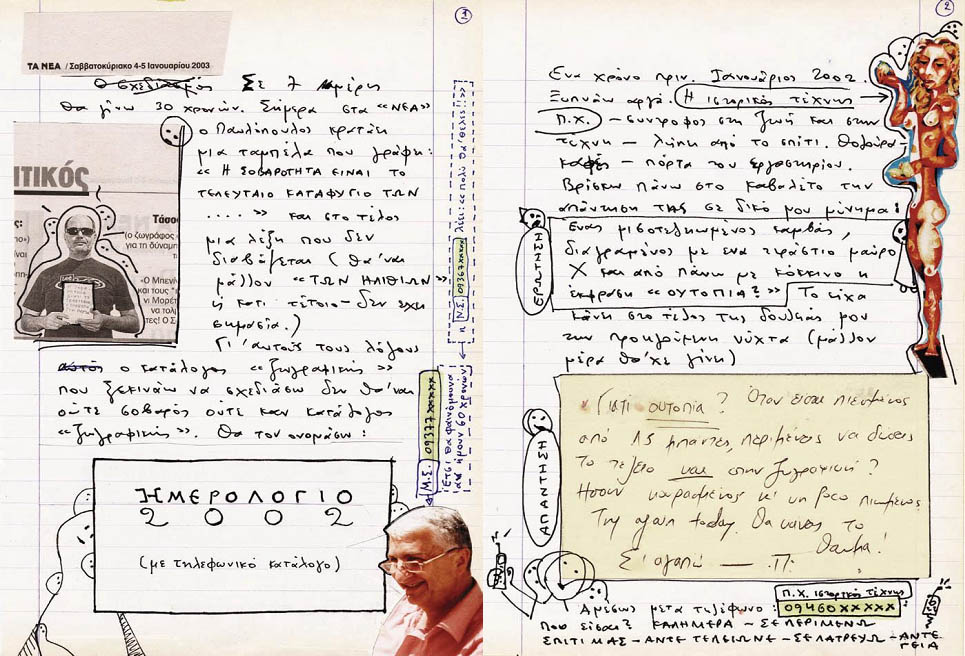 1
ΤΑ ΝΕΑ / Σαββατοκύριακο 4-5 Ιανουαρίου 2003
Ο σχεδιασμός Σε 7 ημέρες
θα γίνω 30 χρονών. Σήμερα στα «ΝΕΑ»
ο Παυλόπουλος κρατάει
μια ταμπέλα που γράφει:
«Η ΣΟΒΑΡΟΤΗΤΑ ΕΙΝΑΙ ΤΟ
ΤΕΛΕΥΤΑΙΟ ΚΑΤΑΦΥΓΙΟ ΤΩΝ
....» και στο τέλος
μια λέξη που δεν
διαβάζεται (θα 'ναι
μάλλον «ΤΩΝ ΗΛΙΘΙΩΝ»
ή κάτι τέτοιο - δεν έχει
σημασία.)
Γι' αυτούς τους λόγους
αυτός ο κατάλογος «ζωγραφικής»
που ξεκινάω να σχεδιάσω δεν θα 'ναι
ούτε σοβαρός ούτε καν κατάλογος
«ζωγραφικής». Θα τον ονομάσω:
ΙΤΙΚΟΣ
ς:
Τάσος
(ο ζωγράφος
για τη δύναμη
«Ο Μπενίν
και τους "ε
νι Μορέτ
τες! Ο Σ
ΗΜΕΡΟΛΟΓΙΟ
2 0 0 2
(με τηλεφωνικό κατάλογο)
Μ.Σ. 09377xxxxx
Έτσι θα φαινόμουνα
αν ήμουν 60 χρονών
η Ν.Σ. 09367xxxxx λέει: «πολύ θα 'θελες!»
2
Ένα χρόνο πριν. Ιανουάριος 2002.
Ξυπνάω αργά. Η ιστορικός τέχνης
Π.Χ. - σύντροφος στη ζωή και στην
τέχνη - λείπει από το σπίτι. Θολούρα-
καφές - πόρτα του εργαστηρίου.
Βρίσκω πάνω στο καβαλέτο την
απάντηση ΤΗΣ σε δικό μου μήνυμα:
ΕΡΩΤΗΣΗ
Ένας μισοτελειωμένος καμβάς,
διαγραμένος με ένα τεράστιο μαύρο
Χ και από πάνω με κόκκινο η
έκφραση «ΟΥΤΟΠΙΑ?» Το είχα
κάνει στο τέλος της δουλειάς μου
την προηγούμενη νύχτα (μάλλον
μέρα θα 'χε γίνει)
ΑΠΑΝΤΗΣΗ
Γιατί ουτοπία? Όταν είσαι πιεσμένος
από 15 μπάντες, περιμένεις να δώσεις
το τέλειο ναι στην ζωγραφική?
Ήσουν κουρασμένος κι υπέρ πιωμένος
Try again today. Θα κάνεις το
θαύμα!
Σ' αγαπώ — Π.
Π.Χ. ιστορικός τέχνης
Αμέσως μετά τηλέφωνο: 09460xxxxx:
που είσαι? ΚΑΛΗΜΕΡΑ - ΣΕ ΠΕΡΙΜΕΝΩ
ΣΠΙΤΙ ΜΑΣ - ΑΝΤΕ ΤΕΛΕΙΩΝΕ - ΣΕ ΛΑΤΡΕΥΩ - ΑΝΤΕ
ΓΕΙΑ